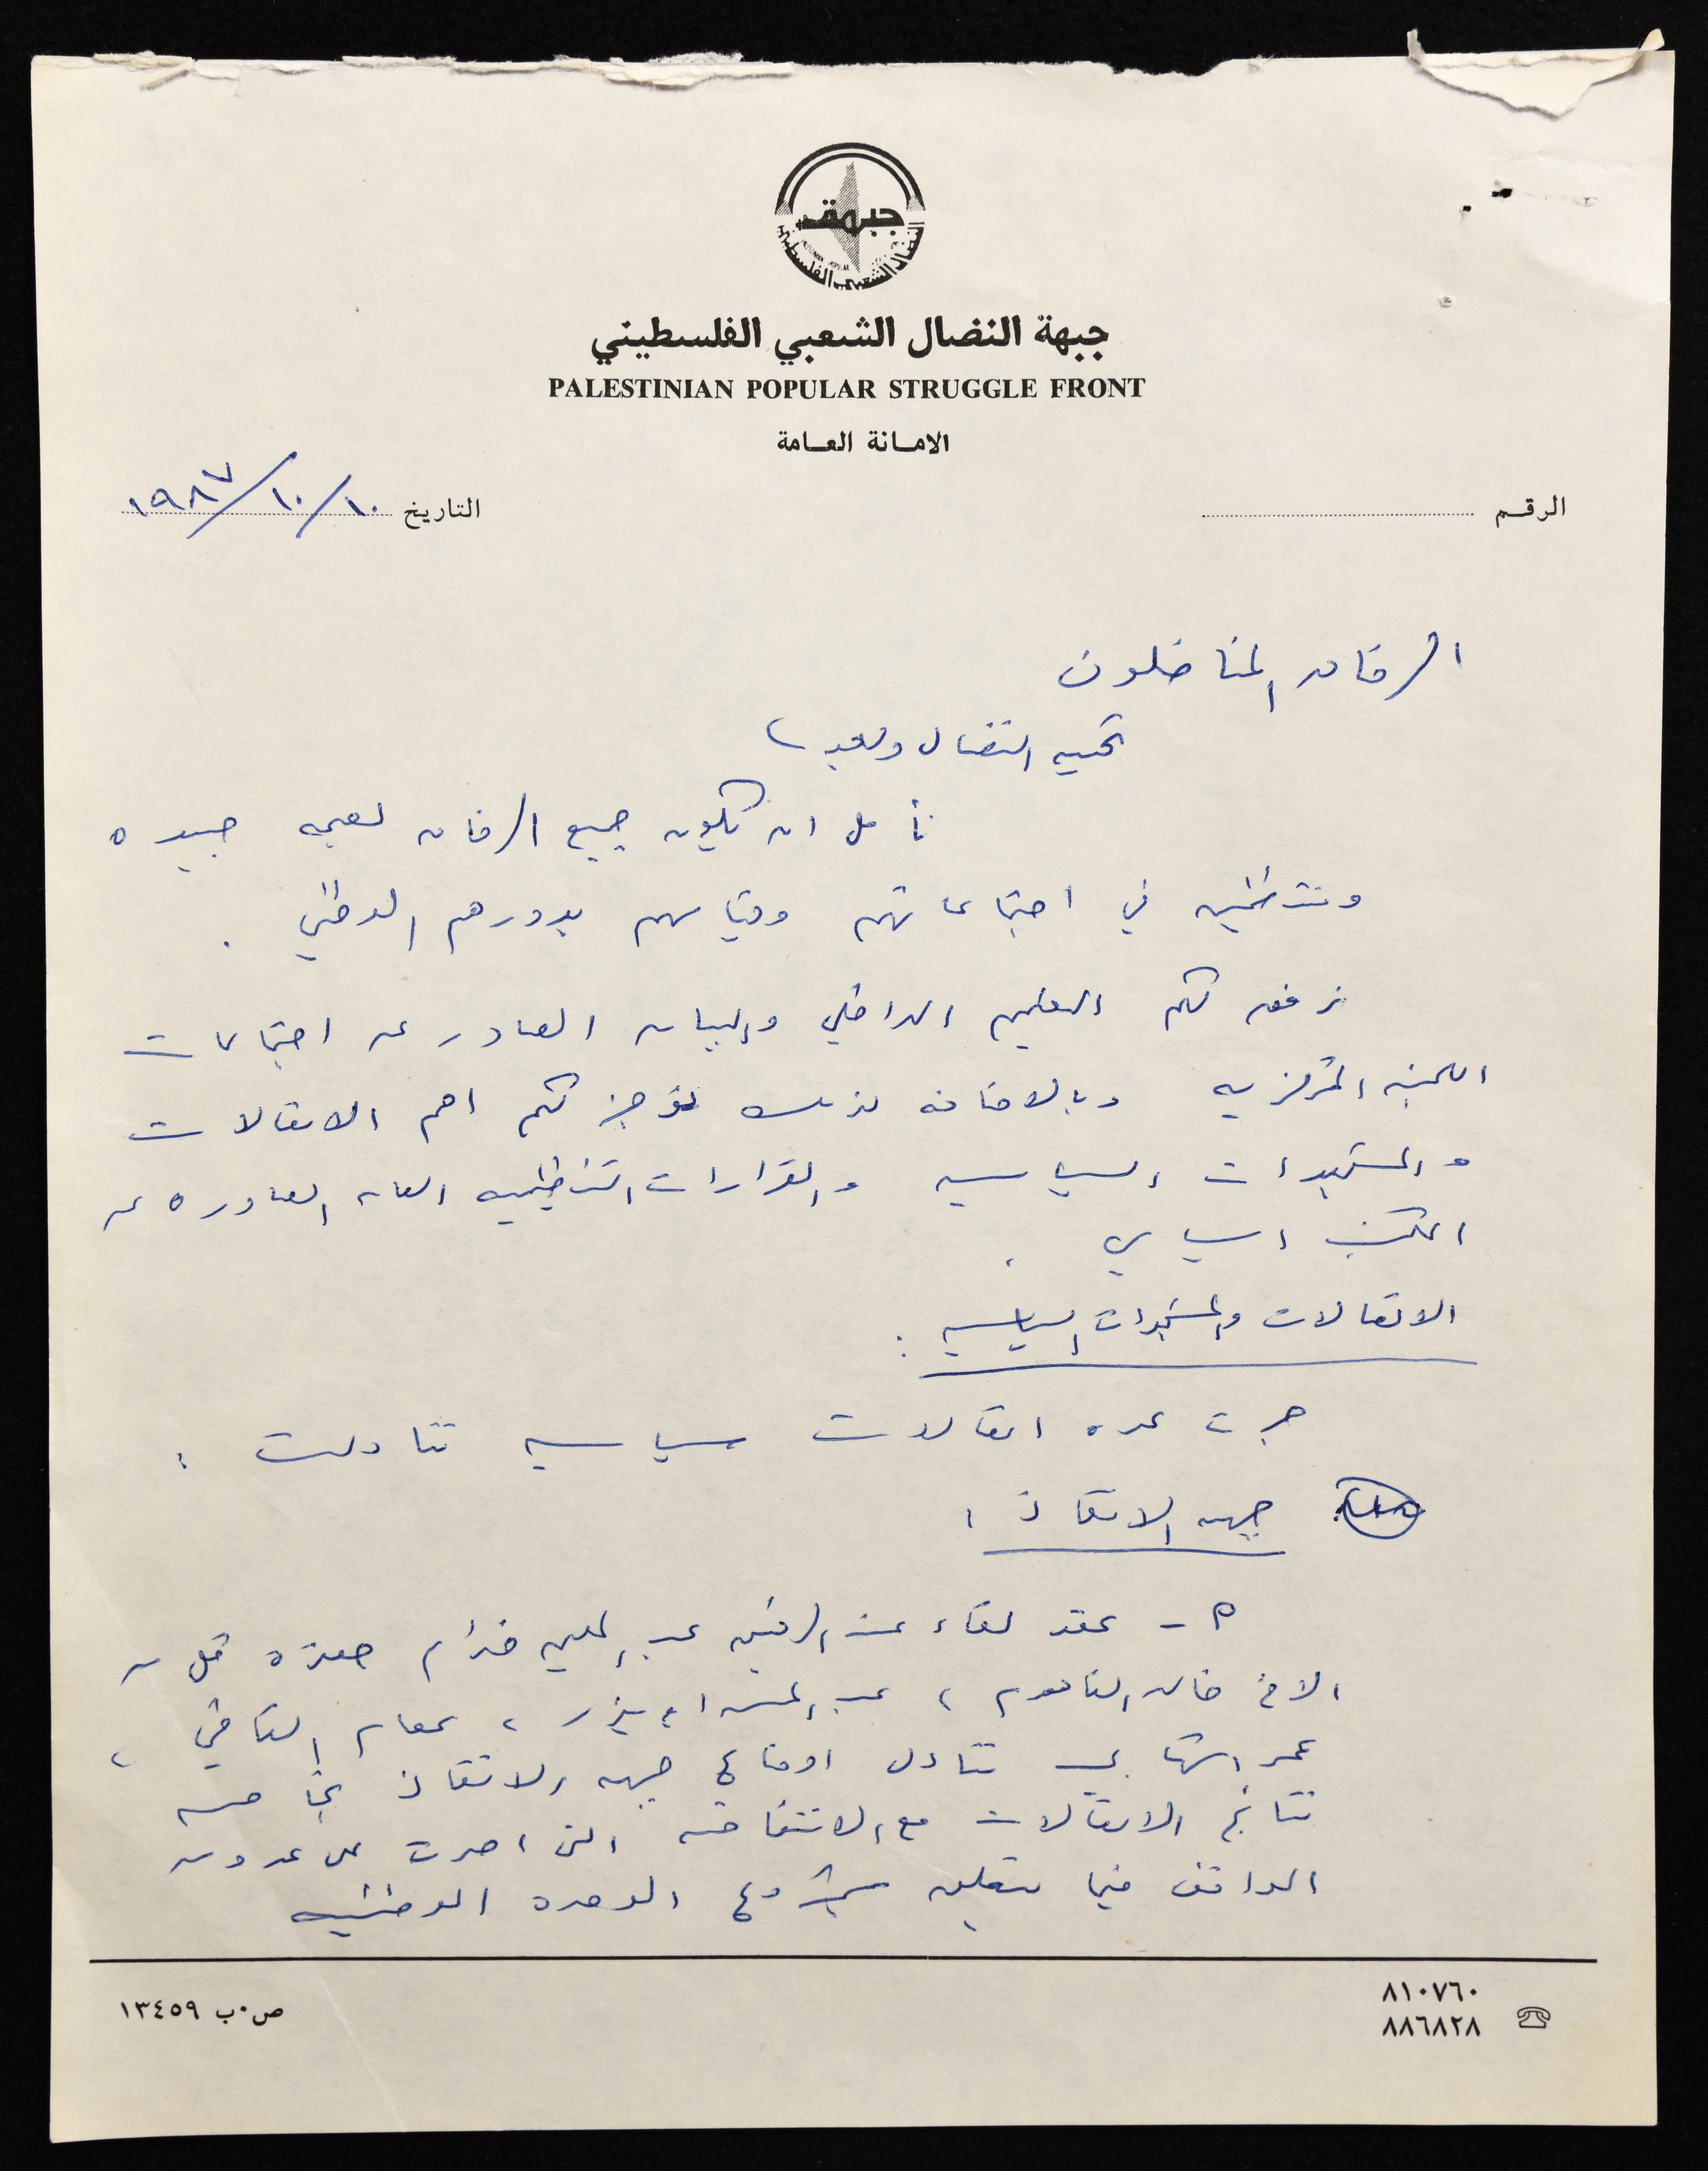 جبهة
النضال الشعبي الفلسطيني
جبهة النضال الشعبي الفلسطيني
PALESTINIAN POPULAR STRUGGLE FRONT
الامانة العامة
الرقم
التاريخ ١٠/١٠/١٩٨٧
الرفاق المناضلون
تحيه النضال وبعد
نأمل ان تكون جميع الرفاق بصحه جيده
ومنتظمين في اجتماعاتهم وقيامهم بدورهم الوطني .
نرفق لكم التعليم الداخلي والبيان الصادر عن اجتماعات
اللجنه المركزيه وبالاضافه لذلك نوجز لكم اهم الاتصالات
والمستجدات السياسيه والقرارات التنظيميه العامه الصادره عن
المكتب السياسي .
الاتصالات والمستجدات السياسيه :
جرت عده اتصالات سياسيه تناولت :
جبهه الانقاذ :
٥ - عقد لقاء عند الرفيق عبد الحليم خدام حضره كل من
الاخ خالد الفاهوم ، عبد المحسن ابو ميزر ، عصام القاضي ،
عمر الشهابي تناول اوضاع جبهه الانقاذ بخاصه
نتائج الاتصالات مع الانتفاضه التي اصرت على عدد من
المواقف فيما يتعلق بمشروع الوحده الوطنيه
٨١٠٧٦٠
٨٨٦٨٢٨
ص.ب ١٣٤٥٩